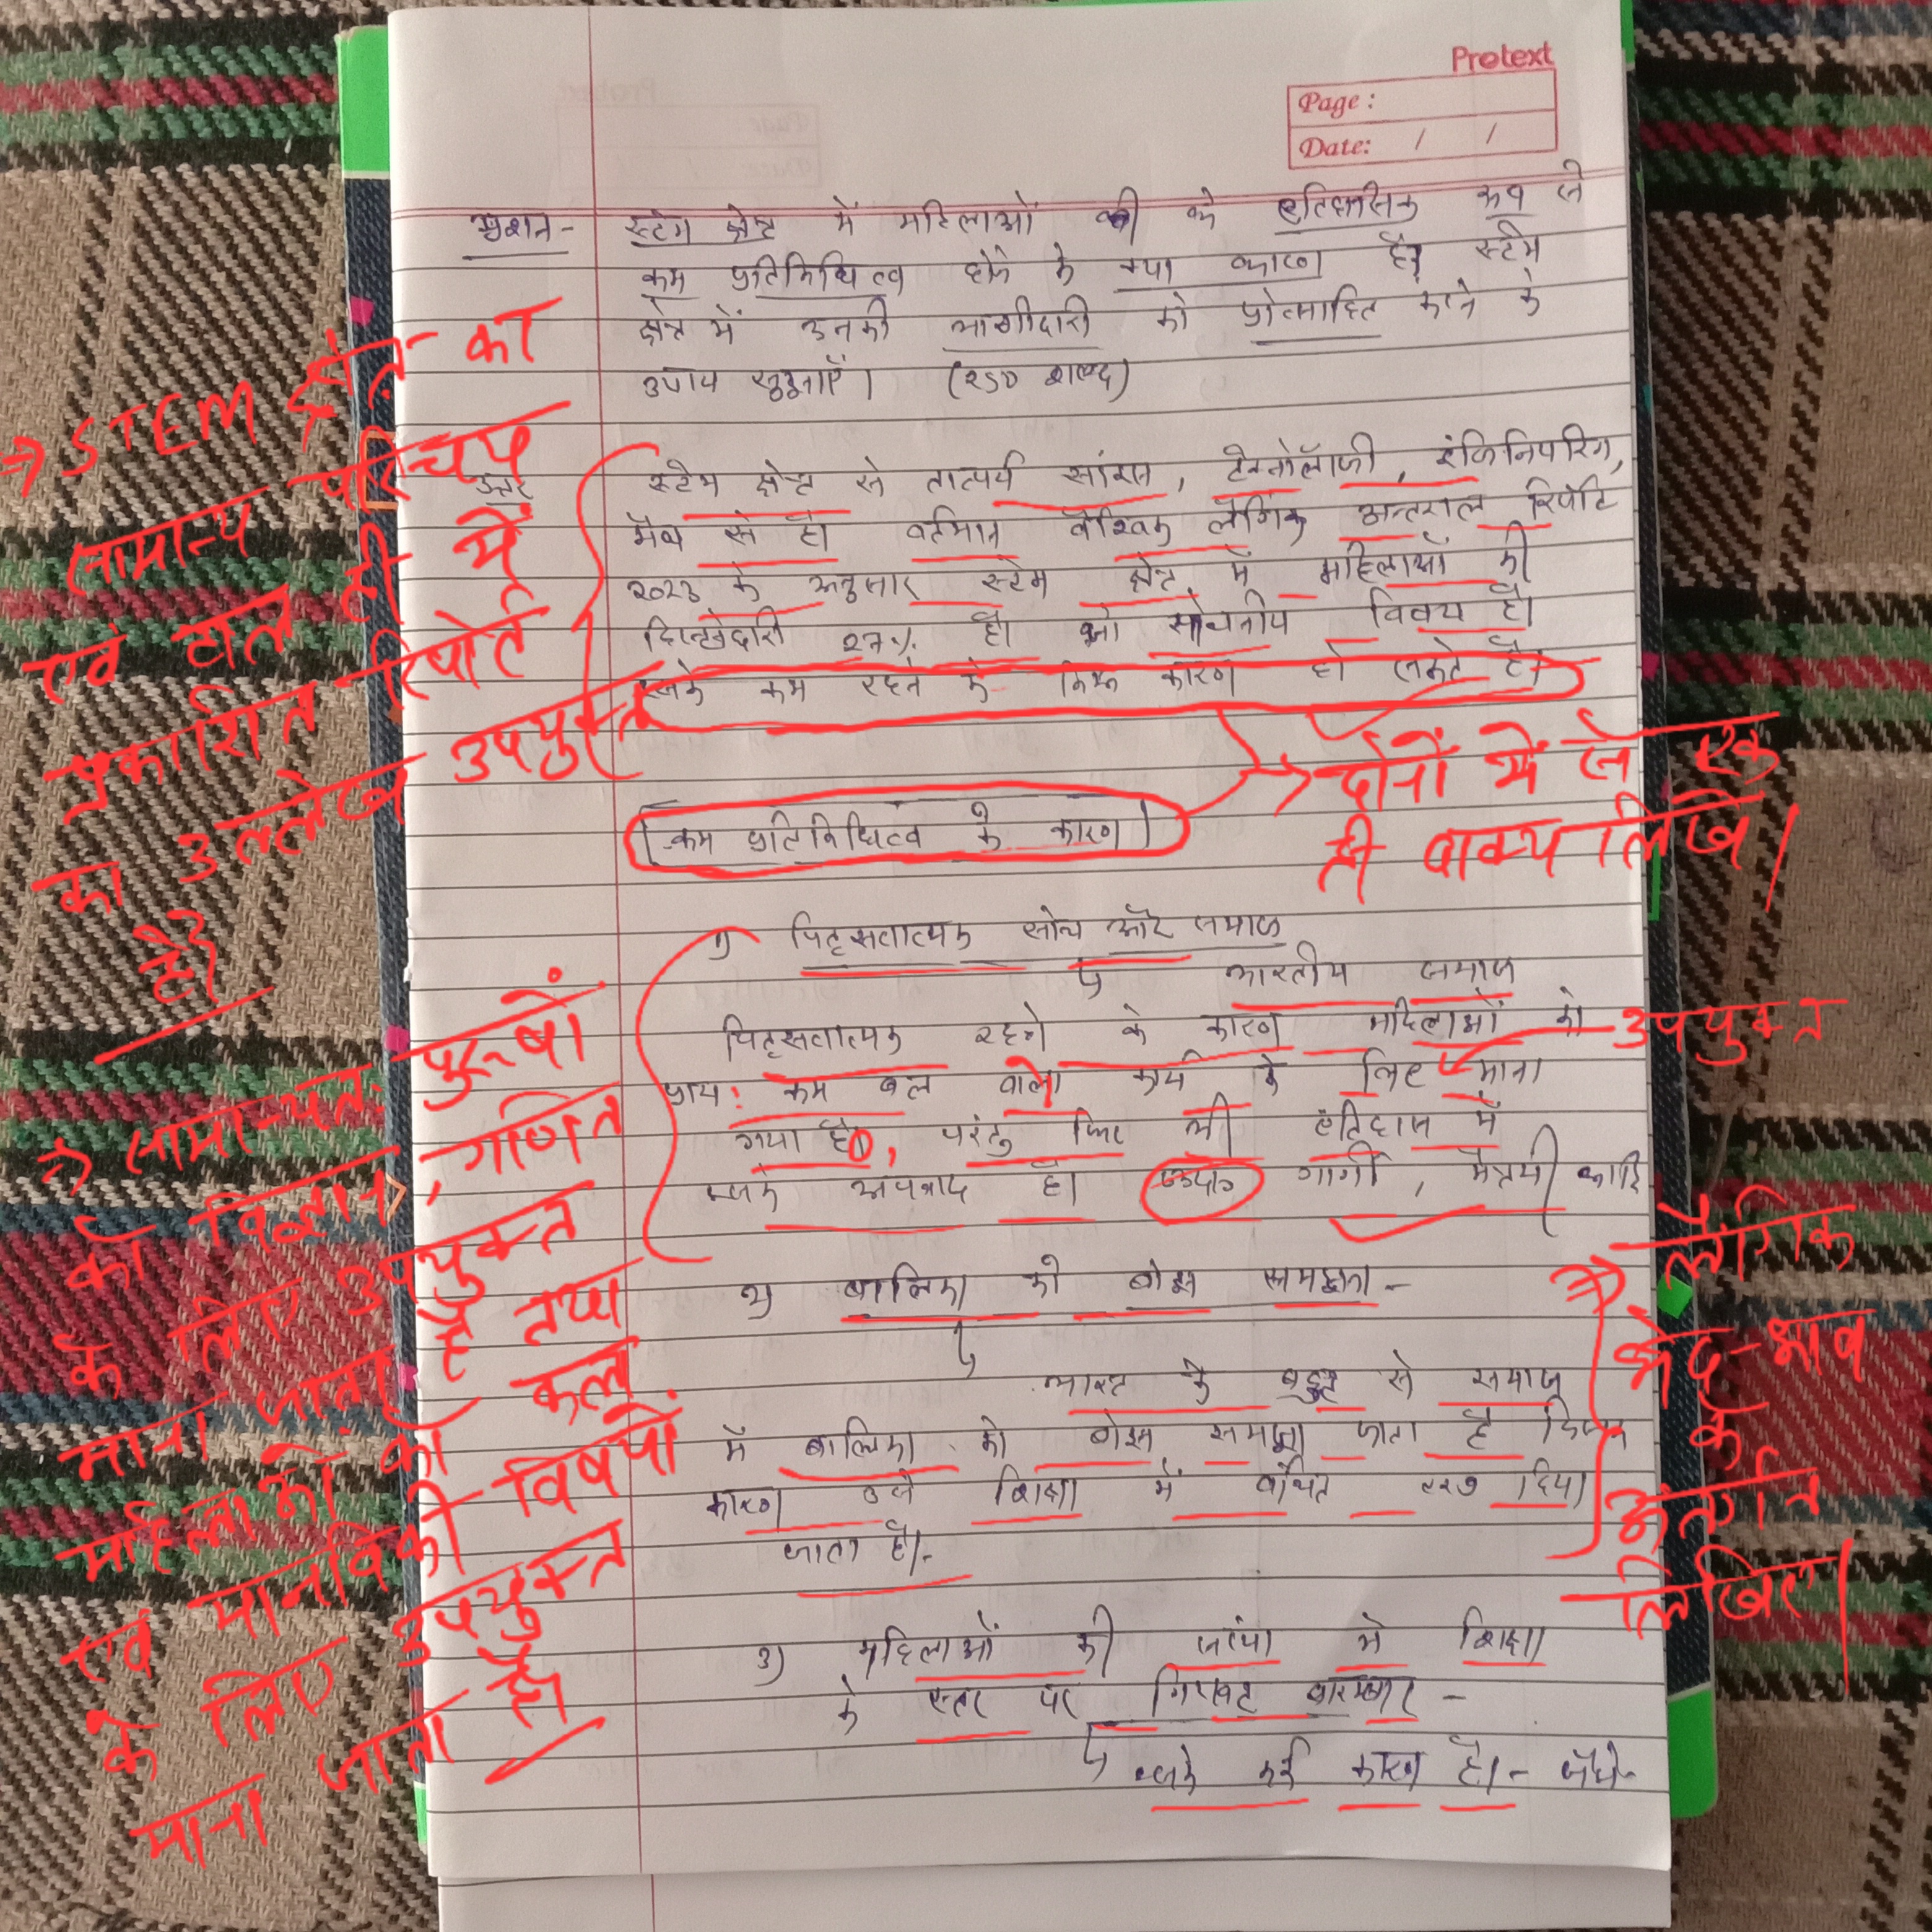 Protext
Page :
Date: / /
प्रश्न- स्टेम क्षेत्र में महिलाओं के ऐतिहासिक रूप से
कम प्रतिनिधित्व होने के क्या कारण है? स्टेम
क्षेत्र में उनकी भागीदारी को प्रोत्साहित करने के
उपाय सुझाएँ। (250 शब्द)
उत्तर
स्टेम क्षेत्र से तात्पर्य सांइस, टेक्नोलॉजी, इंजिनियरिंग,
मैथ से है। वर्तमान वैश्विक लैंगिक अन्तराल रिपोर्ट
2023 के अनुसार स्टेम क्षेत्र में महिलाओं की
हिस्सेदारी 27% है। जो सोचनीय विषय है।
इसके कम रहने के निम्न कारण हो सकते है।
कम प्रतिनिधित्व के कारण
1) पितृसत्तात्मक सोच और समाज
भारतीय समाज
पितृसत्तात्मक रहने के कारण महिलाओं को
प्राय: कम बल वाला कार्य के लिए माना
गया है, परंतु फिर भी इतिहास में
इसके अपवाद है। गार्गी, मैत्रयी आदि
2) बालिका को बोझ समझना -
भारत के बहुत से समाज
में बालिका को बोझ समझा जाता है जिसके
कारण उसे शिक्षा में वंचित रख दिया
जाता है।-
3) महिलाओं की संख्या में शिक्षा
के स्तर पर गिरावट बारम्बार -
इसके कई कारण है।- जैसे-
⇒ STEM क्षेत्र का
सामान्य परिचय
एवं हाल ही में
प्रकाशित रिपोर्ट
का उल्लेख उपयुक्त
है।
→ दोनों में से एक
ही वाक्य लिखें।
उपयुक्त
⇒ सामान्यतः पुरूषों
को विज्ञान, गणित
के लिए उपयुक्त
माना जाता है तथा
महिलाओं को कला
एवं मानविकी विषयों
के लिए उपयुक्त
माना जाता है।
⇒ लैंगिक
भेद-भाव
के
अंतर्गत
लिखिए।